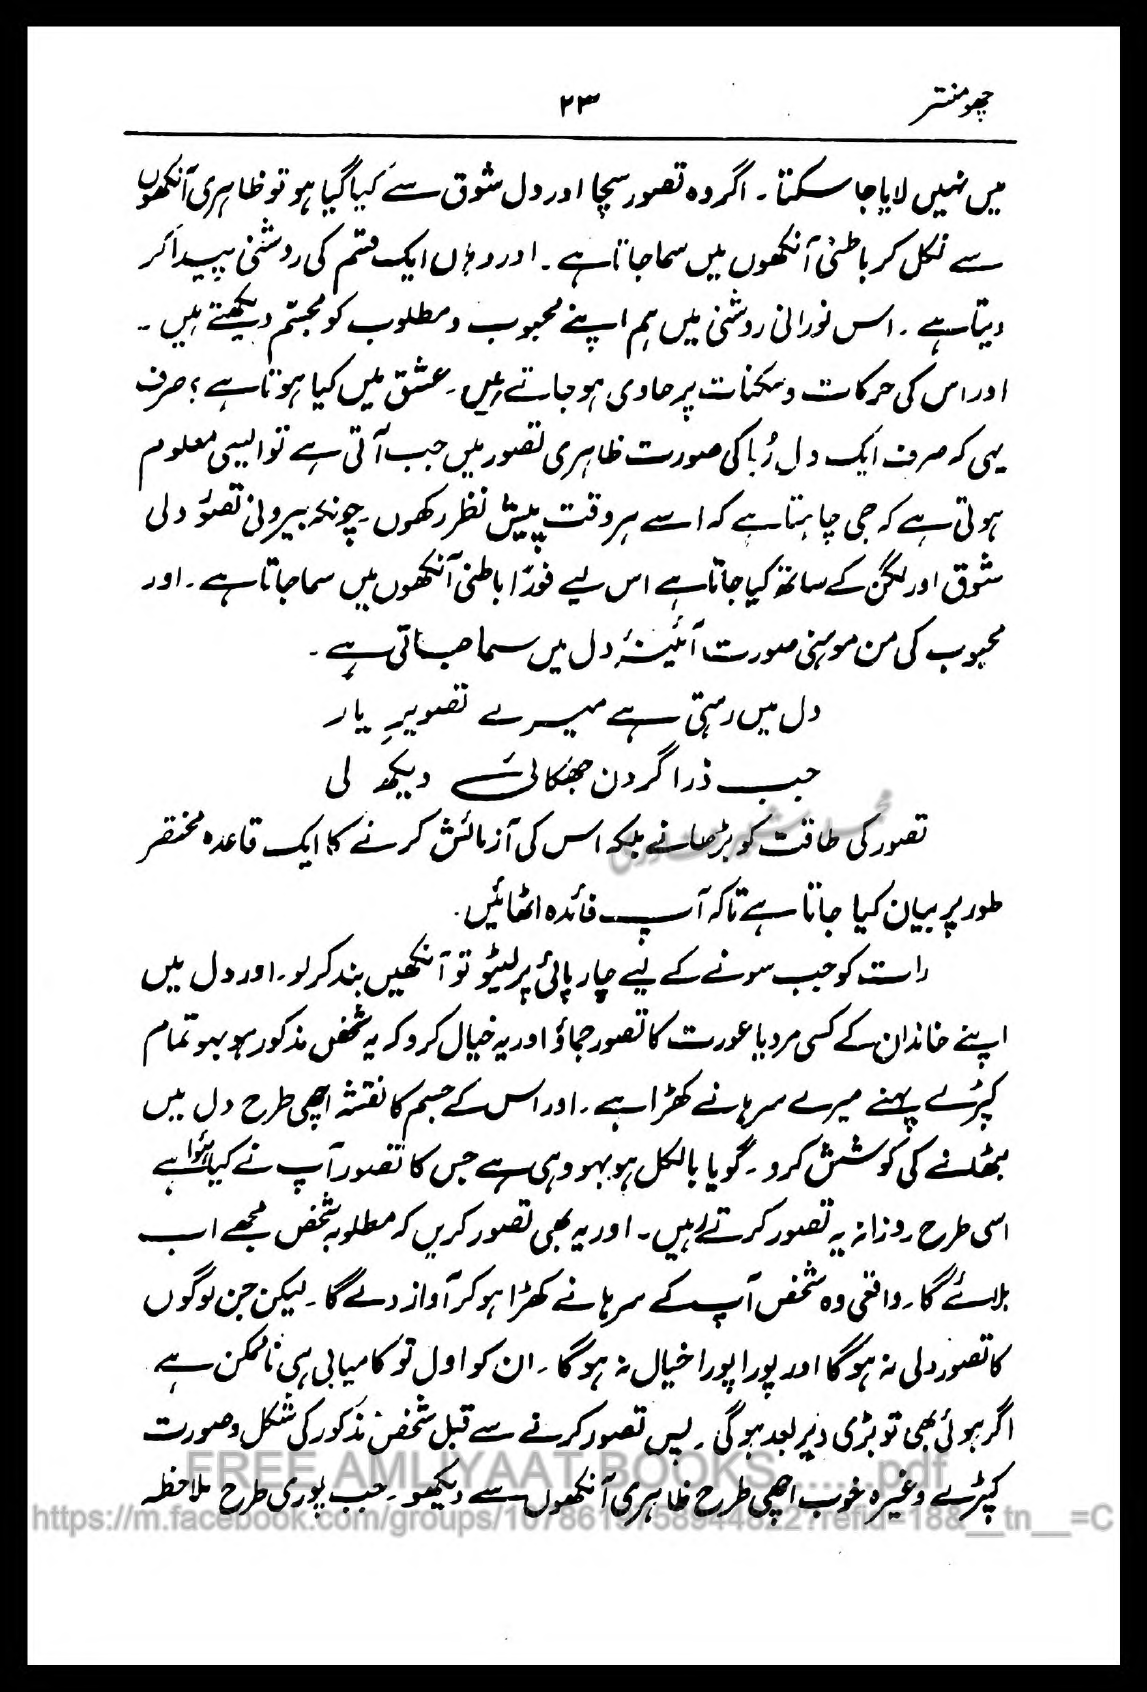 چھومنتر
۲۳
میں نہیں لایا جا سکتا۔ اگر وہ تصور سچا اور دل شوق سے کیا گیا ہو تو ظاہری آنکھوں
سے نکل کر باطنی آنکھوں میں سما جاتا ہے۔ اور وہاں ایک قسم کی روشنی پیدا کر
دیتا ہے۔ اس نورانی روشنی میں ہم اپنے محبوب و مطلوب کو مجسّم دیکھتے ہیں۔
اور اس کی حرکات و سکنات پر حاوی ہو جاتے ہیں۔ عشق میں کیا ہوتا ہے؟ صرف
یہی کہ صرف ایک دل رُبا کی صورت ظاہری تصور میں جب آتی ہے تو ایسی معلوم
ہوتی ہے کہ جی چاہتا ہے کہ اسے ہر وقت پیش نظر رکھوں۔ چونکہ بیرونی تصوّر دلی
شوق اور لگن کے ساتھ کیا جاتا ہے اس لیے فوراً باطنی آنکھوں میں سما جاتا ہے۔ اور
محبوب کی من موہنی صورت آئینۂ دل میں سما جاتی ہے۔
دل میں رہتی ہے میرے تصویرِ یار
جب ذرا گردن جھکائی دیکھ لی
تصور کی طاقت کو بڑھانے بلکہ اس کی آزمائش کرنے کا ایک قاعدہ مختصر
طور پر بیان کیا جاتا ہے تاکہ آپ فائدہ اٹھائیں۔
رات کو جب سونے کے لیے چارپائی پر لیٹو تو آنکھیں بند کر لو۔ اور دل میں
اپنے خاندان کے کسی مرد یا عورت کا تصور جماؤ اور یہ خیال کرو کہ یہ شخص مذکور ہو بہو تمام
کپڑے پہنے میرے سرہانے کھڑا ہے۔ اور اس کے جسم کا نقشہ اچھی طرح دل میں
بٹھلانے کی کوشش کرو۔ گویا بالکل ہو بہو وہی ہے جس کا تصور آپ نے کیا ہوا ہے
اسی طرح روزانہ یہ تصور کرتے رہیں۔ اور یہ بھی تصور کریں کہ مطلوبہ شخص مجھے اب
بلائے گا۔ واقعی وہ شخص آپ کے سرہانے کھڑا ہو کر آواز دے گا۔ لیکن جن لوگوں
کا تصور دلی نہ ہو گا اور پورا پورا خیال نہ ہو گا۔ ان کو اول تو کامیابی ہی ناممکن ہے
اگر ہوئی بھی تو بڑی دیر بعد ہو گی۔ پس تصور کرنے سے قبل شخص مذکور کی شکل و صورت
کپڑے وغیرہ خوب اچھی طرح ظاہری آنکھوں سے دیکھو۔ جب پوری طرح ملاحظہ
FREE AMLIYAAT BOOKS......pdf